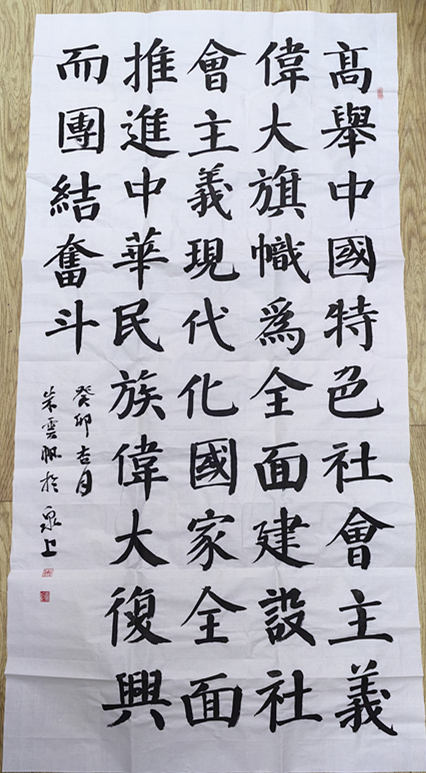 高舉中國特色社會主義
偉大旗幟爲全面建設社
會主義現代化國家全面
推進中華民族偉大復興
而團結奮斗
癸卯吉月
朱雲帆於泉上